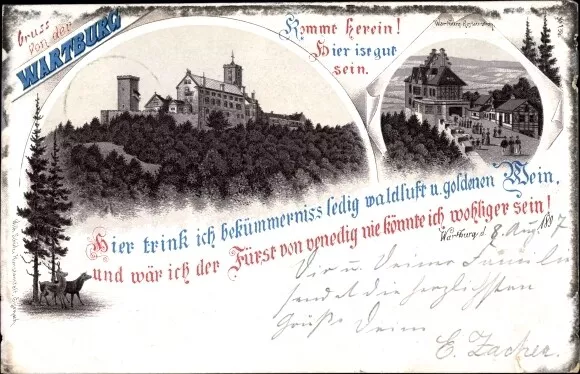 Gruss
von der
WARTBURG
Kommt herein!
Hier ist gut
sein.
Wartburg Restauration
Hier trink ich bekümmerniss ledig waldluft u. goldenen Wein,
und wär ich der Fürst von venedig nie könnte ich wohliger sein!
Wartburg d. 8. Aug. 1897
Dir u. Deiner Familie
sendet die herzlichsten
Grüße Deine
E. Zacher.